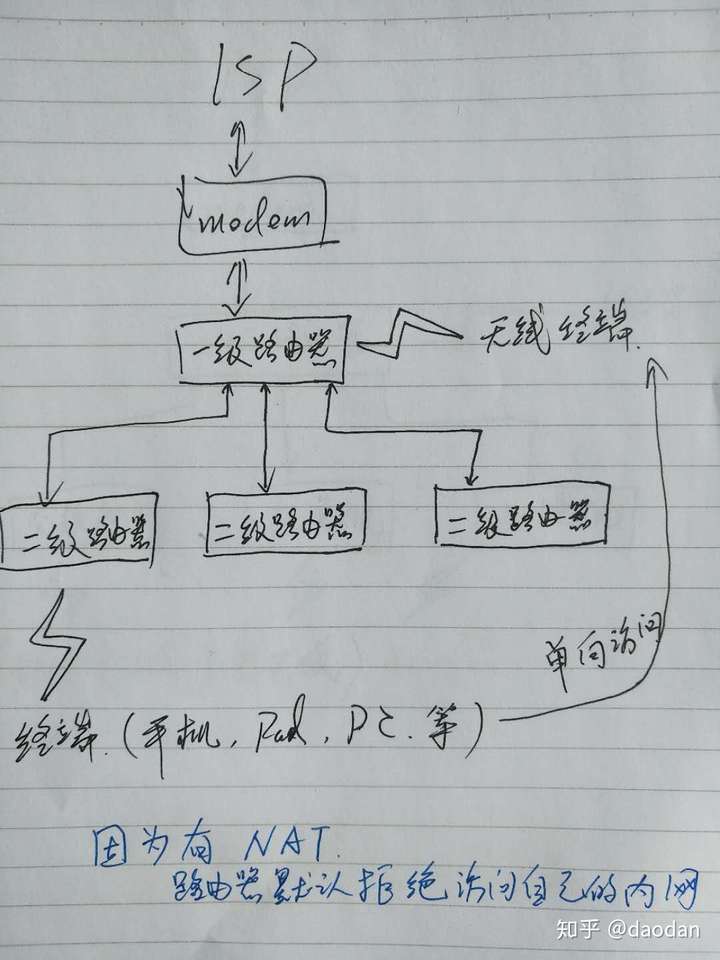 ISP
modem
一级路由器
无线终端.
二级路由器
二级路由器
二级路由器
单向访问
终端.(手机, Pad, PC.等)
因为有 NAT.
路由器默认拒绝访问自己的内网
知乎 @daodan